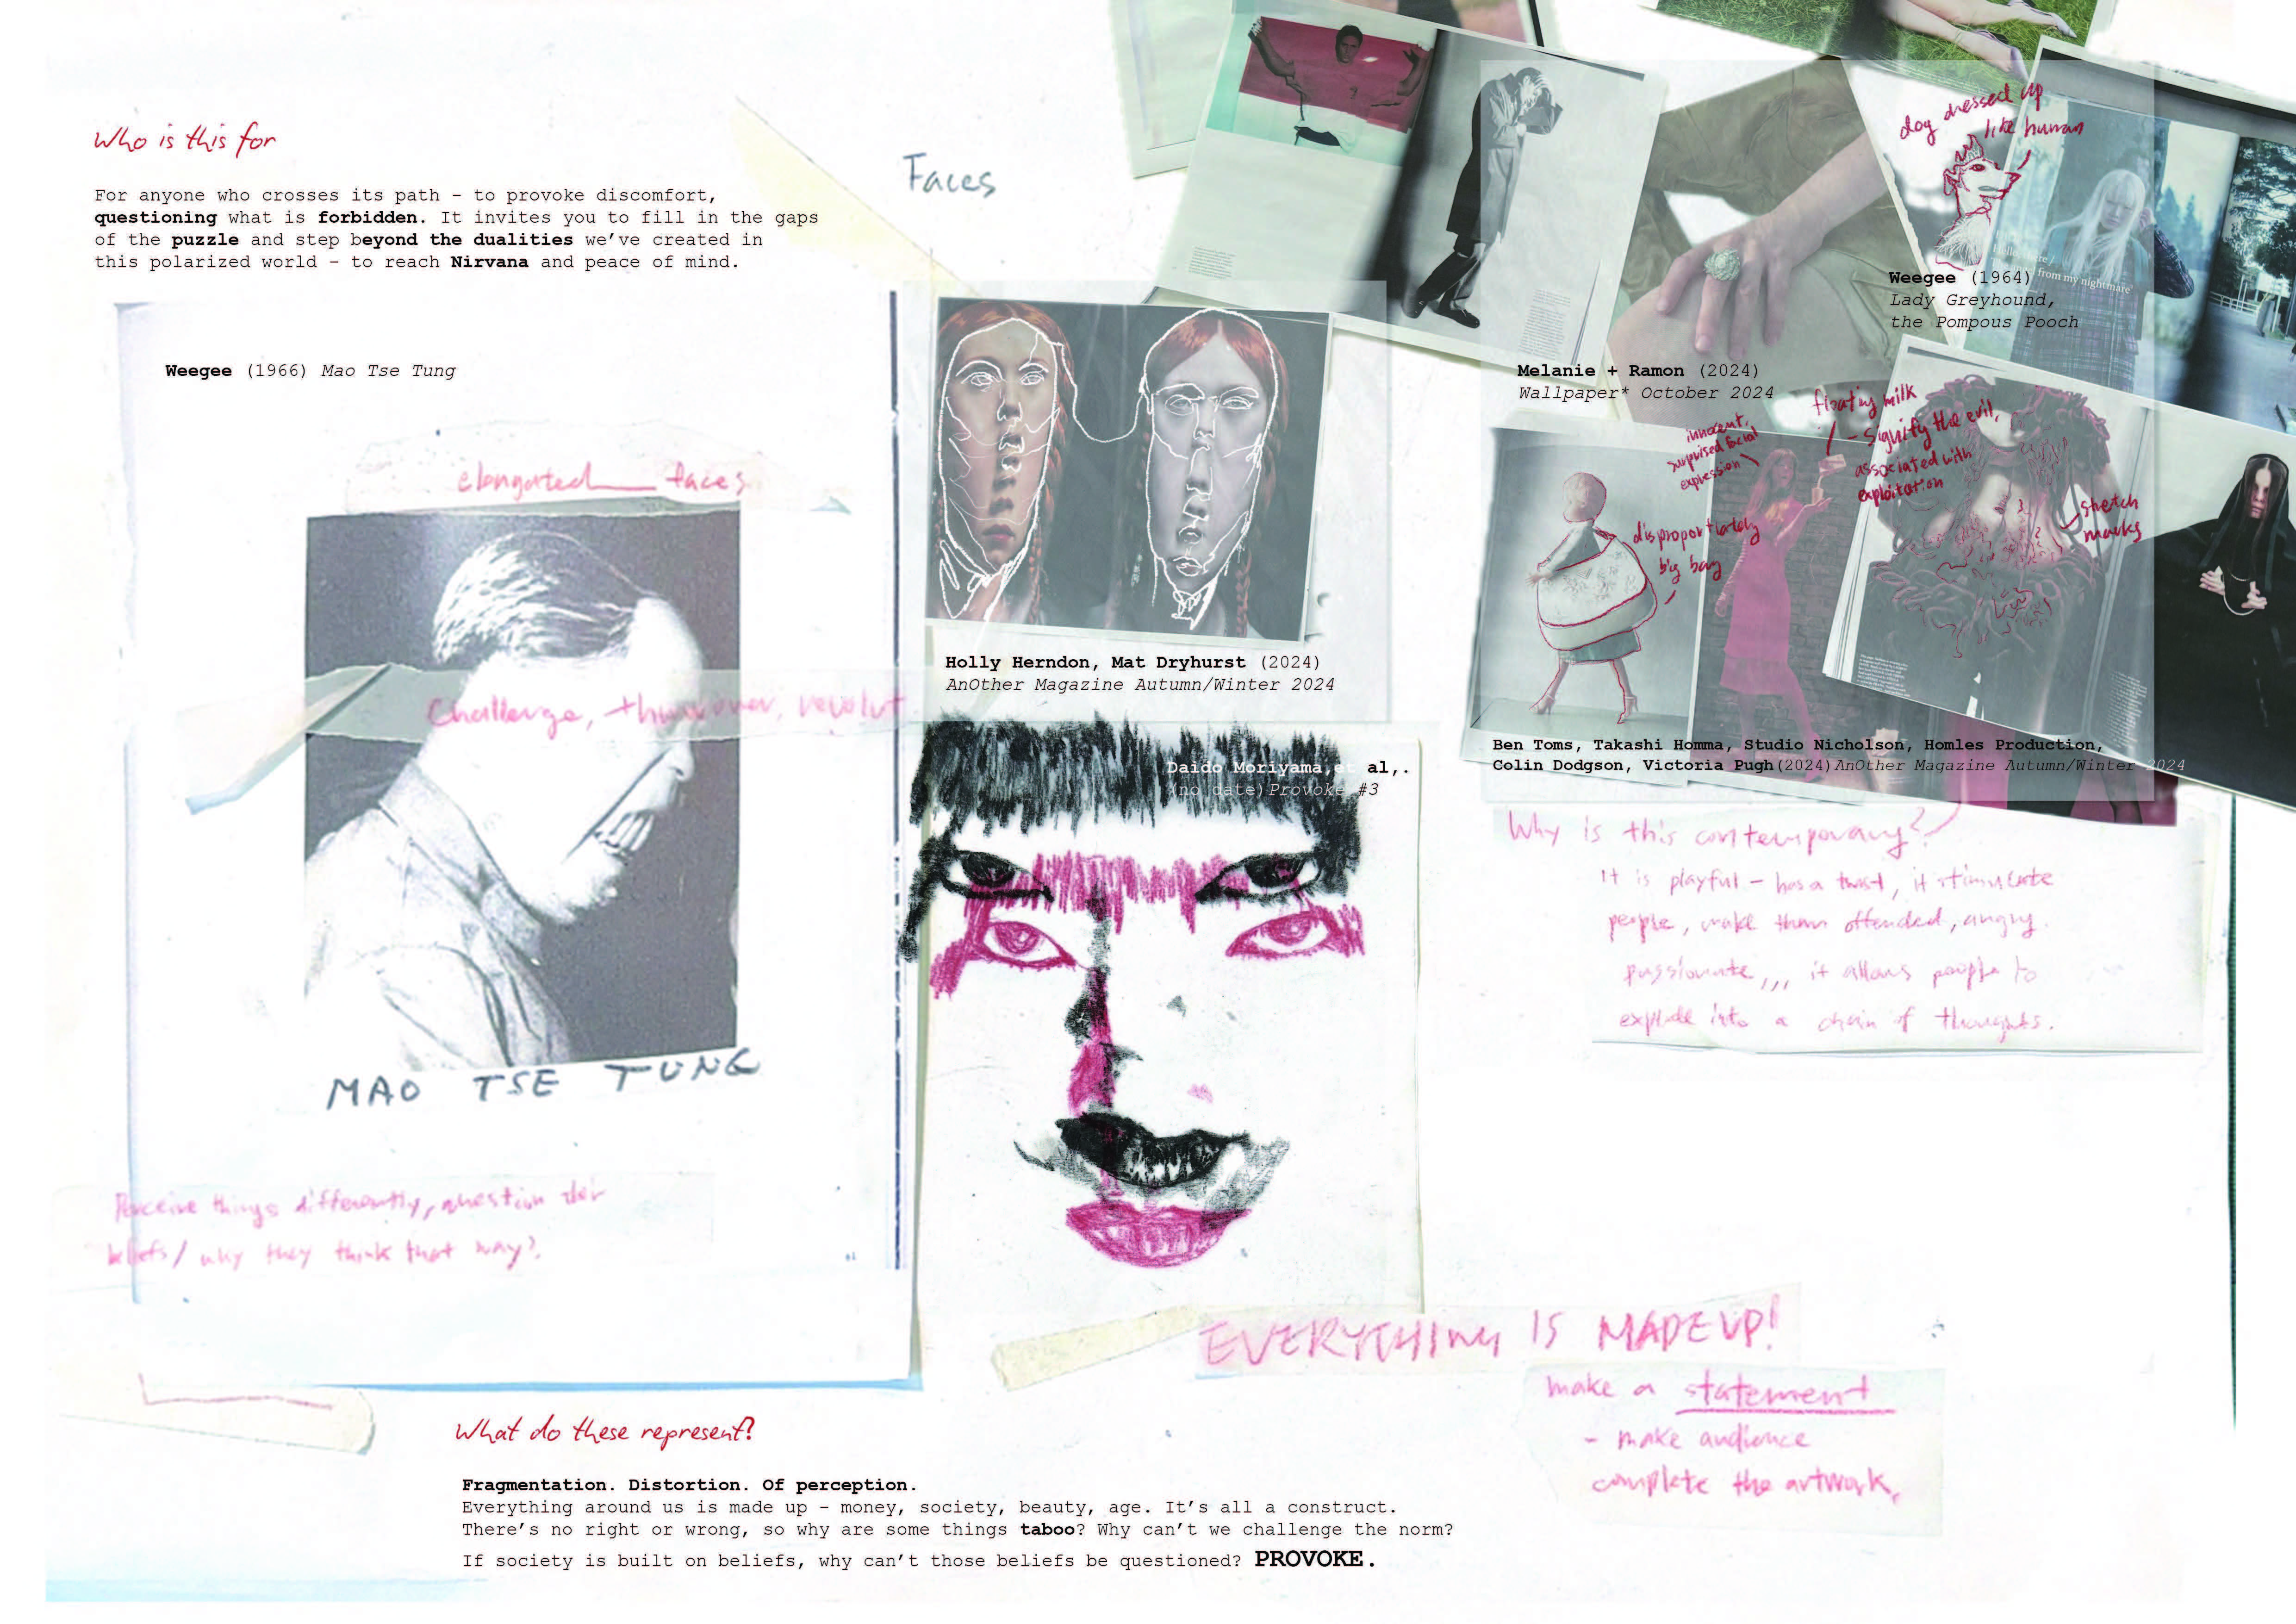 Who is this for
For anyone who crosses its path - to provoke discomfort,
questioning what is forbidden. It invites you to fill in the gaps
of the puzzle and step beyond the dualities we've created in
this polarized world - to reach Nirvana and peace of mind.
Faces
Weegee (1966) Mao Tse Tung
elongated faces
Challenge,
MAO TSE TUNG
Perceive things differently, question
beliefs / why they think that way?
Holly Herndon, Mat Dryhurst (2024)
AnOther Magazine Autumn/Winter 2024
Daido Moriyama, et al,.
(no date) Provoke #3
dog dressed up
like human
from my nightmare'
Weegee (1964)
Lady Greyhound,
the Pompous Pooch
Melanie + Ramon (2024)
Wallpaper* October 2024
innocent,
surprised facial
expression
floating milk
- signify the evil,
associated with
exploitation
disproportiately
big bag
stretch
marks
Ben Toms, Takashi Homma, Studio Nicholson, Homles Production,
Colin Dodgson, Victoria Pugh(2024)AnOther Magazine Autumn/Winter 2024
Why is this contemporary?
It is playful - has a twist, it stimulate
people, make them offended, angry.
passionate,,, it allows people to
explode into a chain of thoughts.
EVERYTHING IS MADE UP!
make a statement
- make audience
complete the artwork.
What do these represent?
Fragmentation. Distortion. Of perception.
Everything around us is made up - money, society, beauty, age. It's all a construct.
There's no right or wrong, so why are some things taboo? Why can't we challenge the norm?
If society is built on beliefs, why can't those beliefs be questioned? PROVOKE.